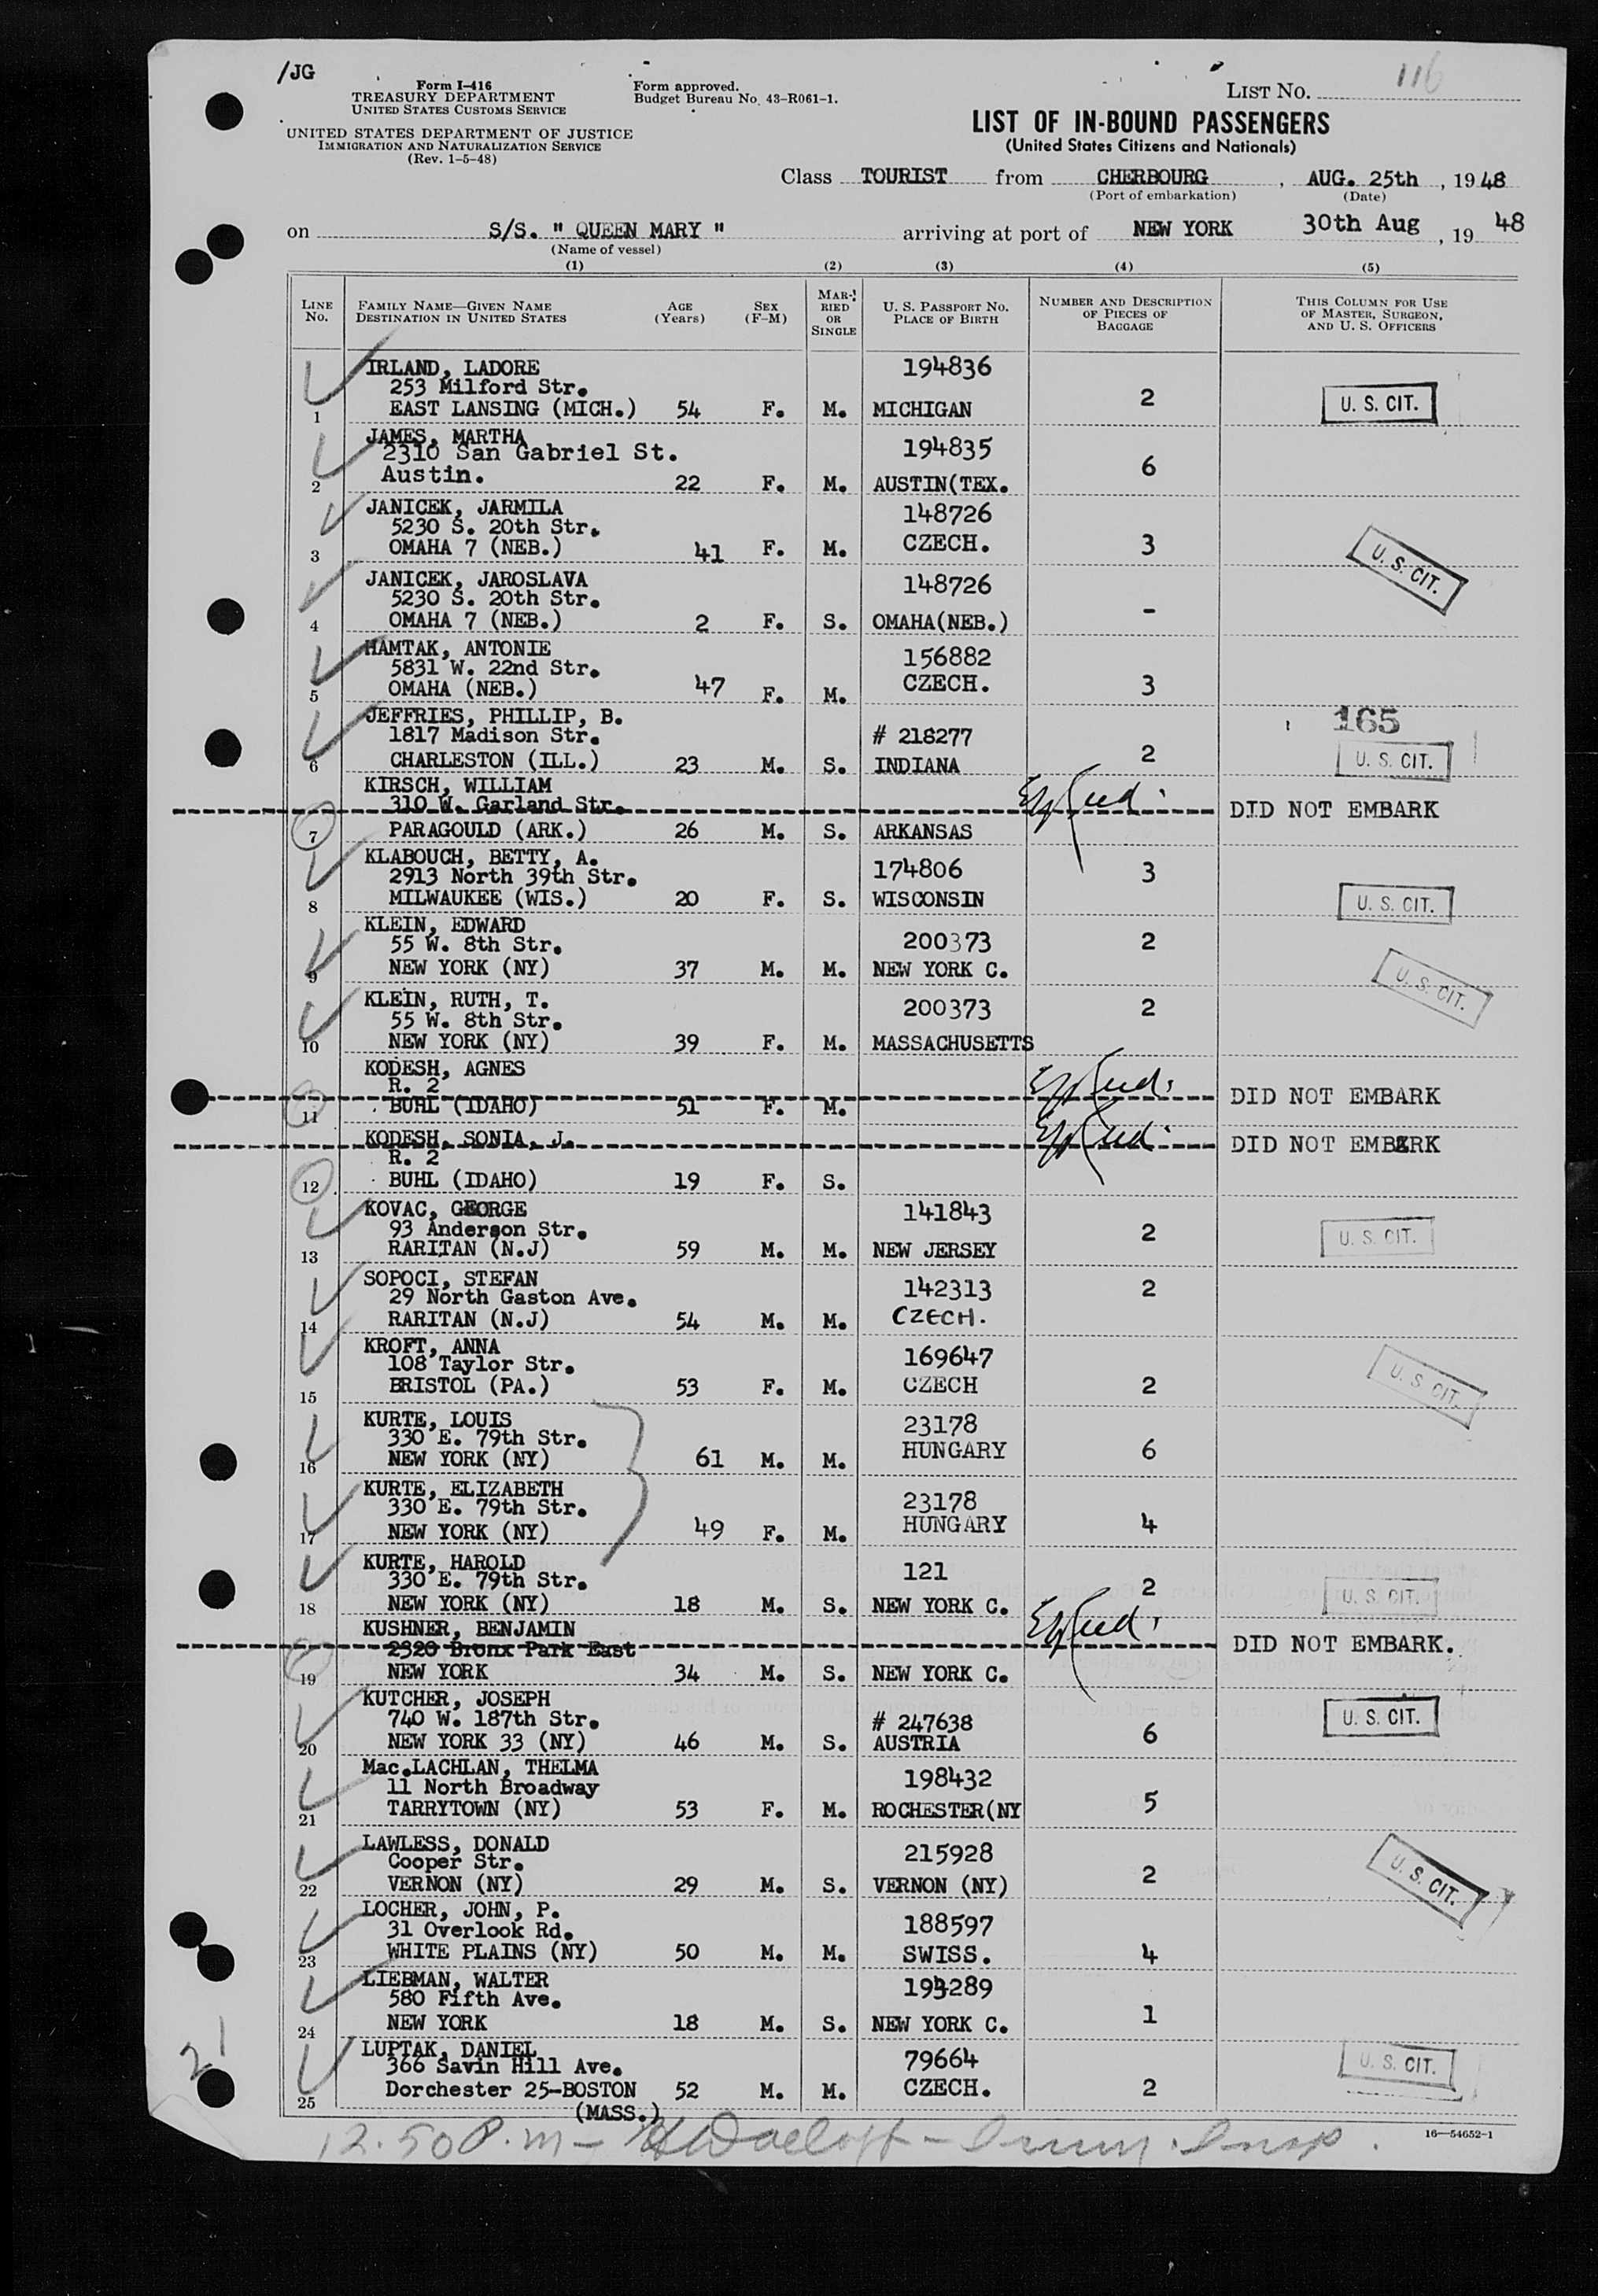 /JG
116
Form I-416
TREASURY DEPARTMENT
UNITED STATES CUSTOMS SERVICE
Form approved.
Budget Bureau No. 43-R061-1.
LIST NO.
UNITED STATES DEPARTMENT OF JUSTICE
IMMIGRATION AND NATURALIZATION SERVICE
(Rev. 1-5-48)
LIST OF IN-BOUND PASSENGERS
(United States Citizens and Nationals)
Class TOURIST from CHERBOURG , AUG. 25th , 1948
(Port of embarkation) (Date)
on S/S. " QUEEN MARY " arriving at port of NEW YORK 30th Aug , 19 48
(Name of vessel)
(1) (2) (3) (4) (5)
LINE NO. FAMILY NAME—GIVEN NAME DESTINATION IN UNITED STATES AGE (Years) SEX (F-M) MARRIED OR SINGLE U. S. PASSPORT NO. PLACE OF BIRTH NUMBER AND DESCRIPTION OF PIECES OF BAGGAGE THIS COLUMN FOR USE OF MASTER, SURGEON, AND U. S. OFFICERS
IRLAND, LADORE 194836
253 Milford Str.
1 EAST LANSING (MICH.) 54 F. M. MICHIGAN 2 U. S. CIT.
JAMES, MARTHA 194835
2310 San Gabriel St.
2 Austin. 22 F. M. AUSTIN(TEX. 6
JANICEK, JARMILA 148726
5230 S. 20th Str.
3 OMAHA 7 (NEB.) 41 F. M. CZECH. 3 U. S. CIT.
JANICEK, JAROSLAVA 148726
5230 S. 20th Str.
4 OMAHA 7 (NEB.) 2 F. S. OMAHA(NEB.) -
HAMTAK, ANTONIE 156882
5831 W. 22nd Str.
5 OMAHA (NEB.) 47 F. M. CZECH. 3
JEFFRIES, PHILLIP, B. 165
1817 Madison Str. # 218277
6 CHARLESTON (ILL.) 23 M. S. INDIANA 2 U. S. CIT.
KIRSCH, WILLIAM
310 W. Garland Str. DID NOT EMBARK
7 PARAGOULD (ARK.) 26 M. S. ARKANSAS
KLABOUCH, BETTY, A. 174806
2913 North 39th Str. 3
8 MILWAUKEE (WIS.) 20 F. S. WISCONSIN U. S. CIT.
KLEIN, EDWARD 200373
55 W. 8th Str. 2
9 NEW YORK (NY) 37 M. M. NEW YORK C. U. S. CIT.
KLEIN, RUTH, T. 200373 2
55 W. 8th Str.
10 NEW YORK (NY) 39 F. M. MASSACHUSETTS
KODESH, AGNES
R. 2 DID NOT EMBARK
11 BUHL (IDAHO) 51 F. M.
KODESH, SONIA, J. DID NOT EMBARK
R. 2
12 BUHL (IDAHO) 19 F. S.
KOVAC, GEORGE 141843
93 Anderson Str. 2 U. S. CIT.
13 RARITAN (N.J) 59 M. M. NEW JERSEY
SOPOCI, STEFAN 142313 2
29 North Gaston Ave.
14 RARITAN (N.J) 54 M. M. CZECH.
KROFT, ANNA 169647
108 Taylor Str.
15 BRISTOL (PA.) 53 F. M. CZECH 2 U. S. CIT.
KURTE, LOUIS 23178
330 E. 79th Str.
16 NEW YORK (NY) 61 M. M. HUNGARY 6
KURTE, ELIZABETH 23178
330 E. 79th Str.
17 NEW YORK (NY) 49 F. M. HUNGARY 4
KURTE, HAROLD 121
330 E. 79th Str. 2 U. S. CIT.
18 NEW YORK (NY) 18 M. S. NEW YORK C.
KUSHNER, BENJAMIN
2320 Bronx Park East DID NOT EMBARK.
19 NEW YORK 34 M. S. NEW YORK C.
KUTCHER, JOSEPH
740 W. 187th Str. # 247638 U. S. CIT.
20 NEW YORK 33 (NY) 46 M. S. AUSTRIA 6
Mac.LACHLAN, THELMA 198432
11 North Broadway
21 TARRYTOWN (NY) 53 F. M. ROCHESTER(NY 5
LAWLESS, DONALD 215928
Cooper Str.
22 VERNON (NY) 29 M. S. VERNON (NY) 2 U. S. CIT.
LOCHER, JOHN, P. 188597
31 Overlook Rd.
23 WHITE PLAINS (NY) 50 M. M. SWISS. 4
LIEBMAN, WALTER
580 Fifth Ave.
24 NEW YORK 18 M. S. NEW YORK C. 1
LUPTAK, DANIEL 79664
366 Savin Hill Ave. U. S. CIT.
25 Dorchester 25-BOSTON 52 M. M. CZECH. 2
(MASS.)
21
12.50 P.m -
16—54652-1